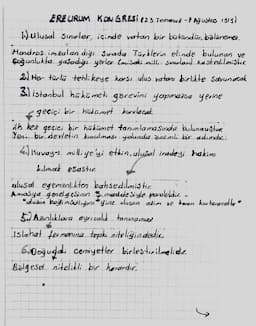 ERZURUM KONGRESİ (23 Temmuz - 7 Ağustos 1919)
1) Ulusal sınırlar içinde vatan bir bütündür, bölünemez.
Mondros imzalandığı sırada Türklerin elinde bulunan ve
çoğunlukta yaşadığı yerler (misakı milli sınırları) kastedilmiştir.
2) Her türlü tehlikeye karşı ulus vatanı birlikte savunacak
3) İstanbul hükümeti görevini yapmazsa yerine
geçici bir hükümet kurulacak
ilk kez geçici bir hükümet tanımlamasında bulunmuştur.
Yeni bir devletin kurulması yolunda önemli bir adımdır.
4) Kuvayı milliyeyi etkin, ulusal iradeyi hakim
kılmak esastır.
ulusal egemenlikten bahsedilmiştir.
Amasya genelgesinin maddesiyle paraleldir.
"ulusun bağımsızlığını yine ulusun azim ve kararı kurtaracaktır"
5) Azınlıklara ayrıcalık tanınamaz
Islahat fermanına tepki niteliğindedir.
6) Doğudaki cemiyetler birleştirilmelidir.
Bölgesel nitelikli bir karardır.